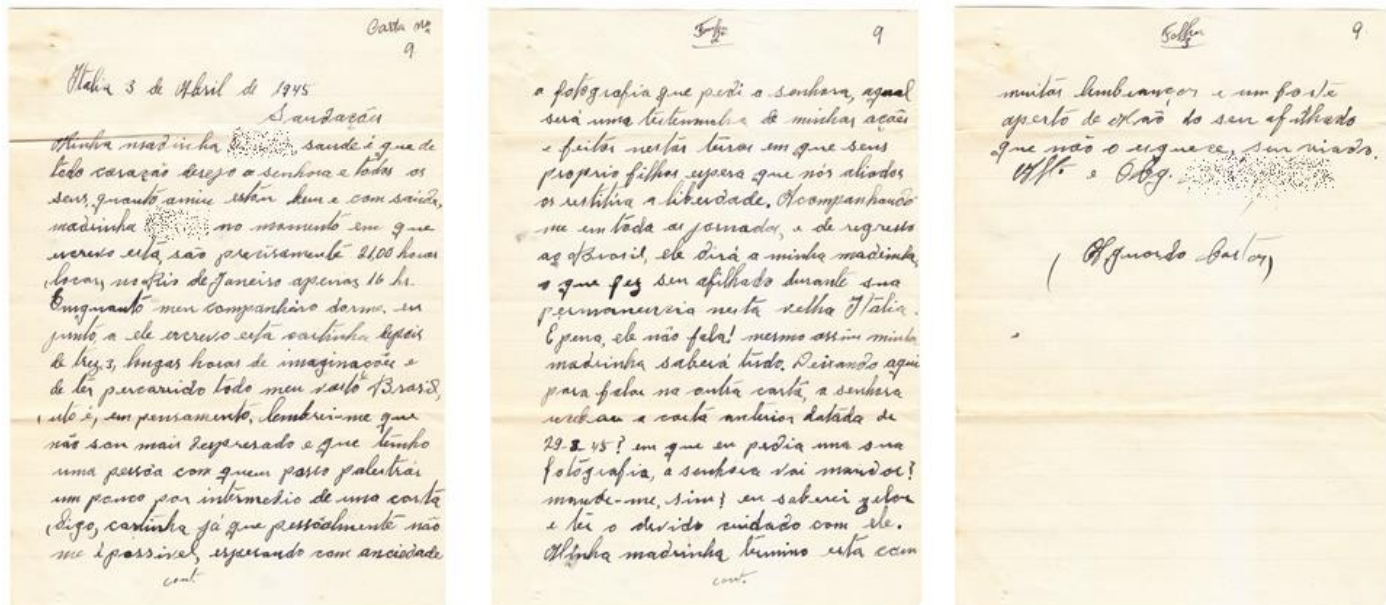 Carta Nº
9
Italia 3 de Abril de 1945
Saudações
Minha madrinha saude é que de
todo coração desejo a senhora e todos os
seus, quanto amim estou bem e com saúde,
madrinha no momento em que
escrevo está, são precisamente 21,00 horas
locaes, no Rio de Janeiro apenas 16 hs.
Emquanto meu companheiro dorme, eu
junto a ele escrevo está cartinha depois
de trez 3, longas horas de imaginações e
de ter percorrido todo meu vasto Brasil,
isto é, em pensamento, lembrei-me que
não sou mais despresado e que tenho
uma pessôa com quem posso palestrar
um pouco por intermedio de uma carta
digo, cartinha já que pessôalmente não
me é possivel, esperando com anciedade
cont.
Folha
2
9
a fotografia que pedi a senhora, aqual
será uma testemunha de minhas ações
e feitos nestas terras em que seus
proprio filhos espera que nós aliados
os restitua a liberdade. Acompanhando
me em toda as jornadas, e de regresso
ao Brasil, ele dirá a minha madrinha,
o que fez seu afilhado durante sua
permanencia nesta velha Italia.
É pena, ele não fala! mesmo assim minha
madrinha saberá tudo. Deixando aqui
para falar na outra carta, a senhora
recebeu a carta anterior datada de
29-3-45? em que eu pedia uma sua
fotografia, a senhora vai mandar?
mande-me, sim! eu saberei zelar
e ter o devido cuidado com ele.
Minha madrinha termino esta com
cont.
Folha
3
9
muitas lembranças e um forte
aperto de mão do seu afilhado
que não o esquece,
Att. e Obg.
( Aguardo Cartas)